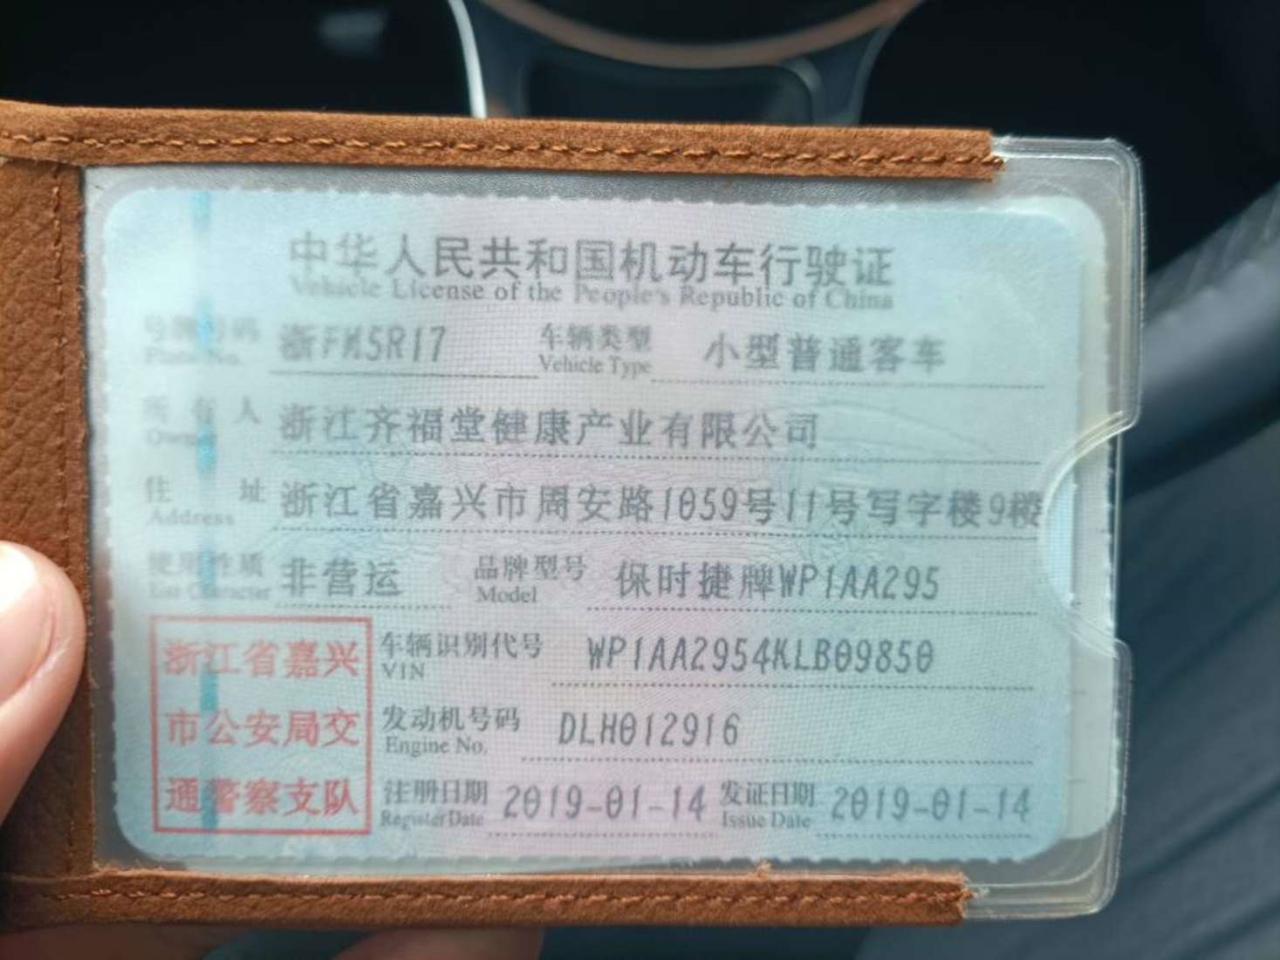 中华人民共和国机动车行驶证
Vehicle License of the People's Republic of China
号牌号码 浙FM5R17 车辆类型 小型普通客车
Plate No. Vehicle Type
所有人 浙江齐福堂健康产业有限公司
Owner
住址 浙江省嘉兴市周安路1059号11号写字楼9楼
Address
使用性质 非营运 品牌型号 保时捷牌WP1AA295
Use Character Model
浙江省嘉兴
市公安局交
通警察支队
车辆识别代号 WP1AA2954KLB09850
VIN
发动机号码 DLH012916
Engine No.
注册日期 2019-01-14 发证日期 2019-01-14
Register Date Issue Date